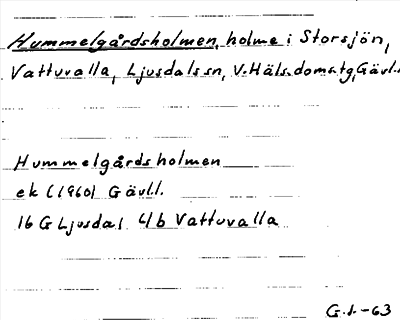 Hummelgårdsholmen, holme i Storsjön,
Vattuvalla, Ljusdals sn, V. Häls. doms. tg, Gävl.l.
Hummelgårdsholmen
ek (1960) Gävl.l.
16 G Ljusdal 4/b Vattuvalla
G.I.-63